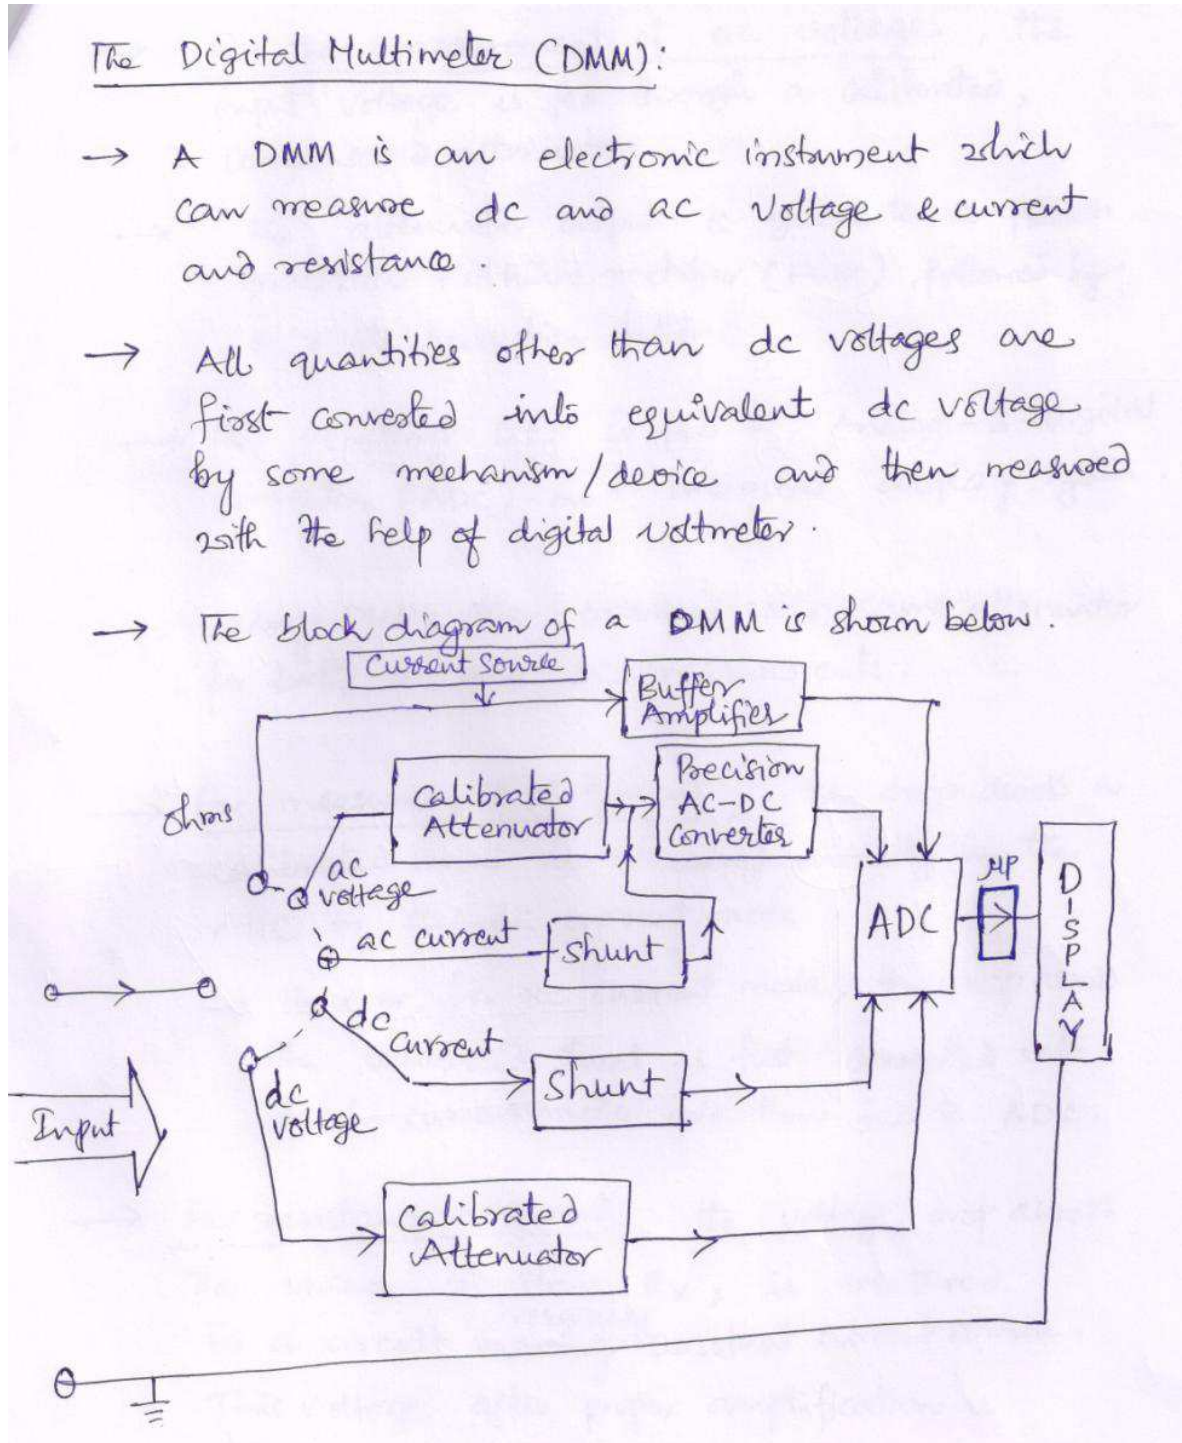 The Digital Multimeter (DMM):
→ A DMM is an electronic instrument which
can measure dc and ac voltage & current
and resistance.
→ All quantities other than dc voltages are
first converted into equivalent dc voltage
by some mechanism/device and then measured
with the help of digital voltmeter.
→ The block diagram of a DMM is shown below.
Current Source
Buffer
Amplifier
Precision
AC-DC
Converter
Calibrated
Attenuator
ohms
ac
voltage
μP
DISPLAY
ADC
ac current
Shunt
dc
current
Shunt
dc
voltage
Input
Calibrated
Attenuator